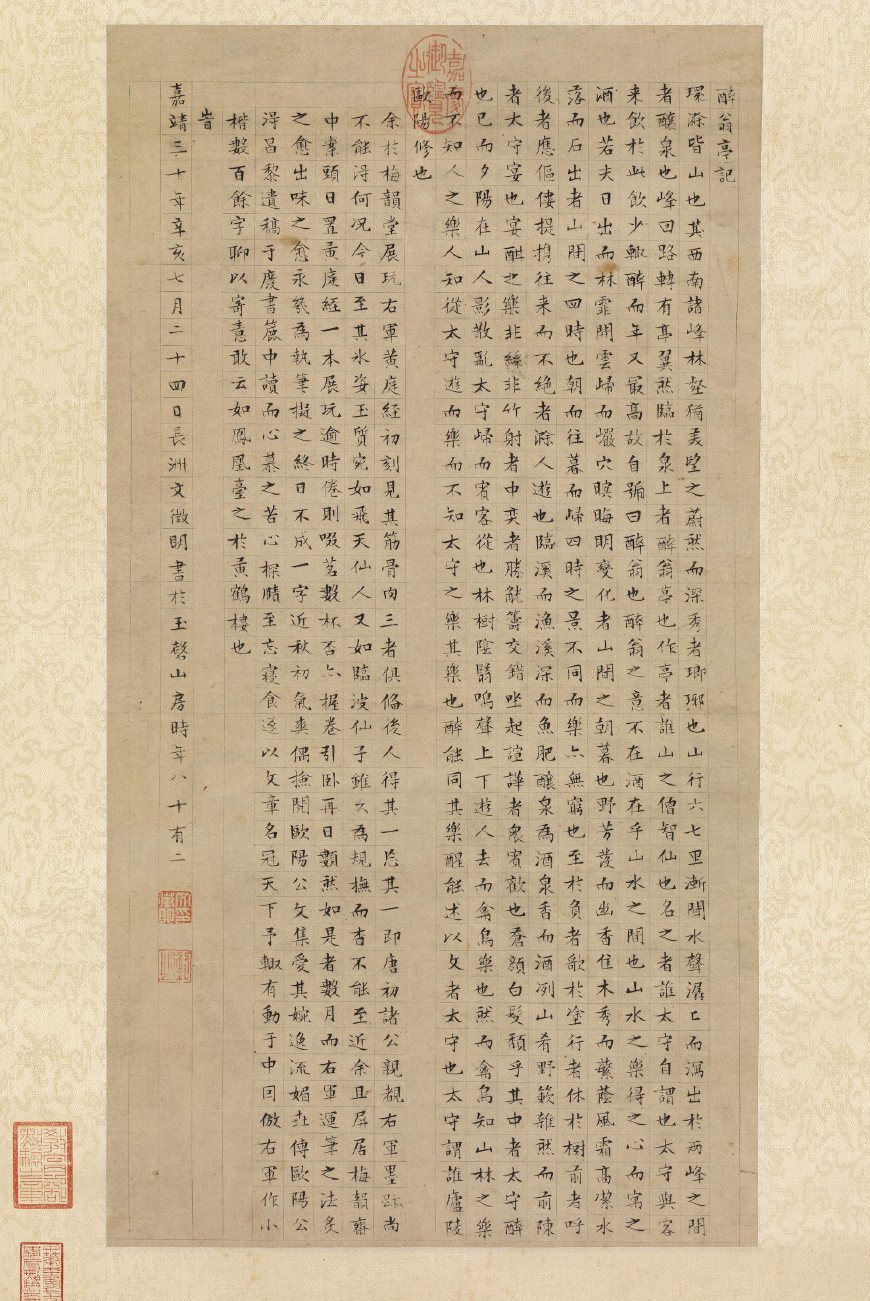 醉翁亭記
環滁皆山也其西南諸峰林壑猗美望之蔚然而深秀者瑯琊也山行六七里漸聞水聲潺〻而瀉出於兩峰之間
者釀泉也峰回路轉有亭翼然臨於泉上者醉翁亭也作亭者誰山之僧智仙也名之者誰太守自謂也太守與客
来飲於此飲少輒醉而年又最高故自號曰醉翁也醉翁之意不在酒在乎山水之間也山水之樂得之心而寓之
酒也若夫日出而林霏開雲歸而巖穴暝晦明變化者山間之朝暮也野芳發而幽香佳木秀而蘩蔭風霜高潔水
落而石出者山間之四時也朝而往暮而歸四時之景不同而樂亦無窮也至於負者歌於塗行者休於樹前者呼
後者應傴僂提攜往来而不絕者滁人遊也臨溪而漁溪深而魚肥釀泉為酒泉香而酒冽山肴野蔌雜然而前陳
者太守宴也宴酣之樂非絲非竹射者中奕者勝觥籌交錯坐起諠譁者衆賓歡也蒼顏白髮頹乎其中者太守醉
也已而夕陽在山人影散亂太守歸而賓客從也林樹陰翳鳴聲上下遊人去而禽鳥樂也然而禽鳥知山林之樂
而不知人之樂人知從太守遊而樂而不知太守之樂其樂也醉能同其樂醒能述以文者太守也太守謂誰廬陵
歐陽修也
余於梅韻堂展玩右軍黄庭經初刻見其筋骨肉三者俱俻後人得其一忘其一即唐初諸公親覩右軍墨跡尚
不能得何況今日至其氷姿玉質宛如飛天仙人又如臨波仙子雖久為規橅而杳不能至近余且屏居梅韻齋
中案頭日置黄庭經一本展玩逾時倦則啜茗數杯否亦握卷引卧再日數然如是者數月而右軍運筆之法炙
之愈出味之愈永幾為執筆擬之終日不成一字近秋初氣爽偶撿閱歐陽公文集愛其婉逸流媚世傳歐陽公
得昌黎遺稿于廢書簏中讀而心慕之苦心探賾至忘寢食遂以文章名冠天下予輒有動于中因倣右軍作小
楷數百餘字聊以寄意敢云如鳳凰臺之於黄鶴樓也
旹
嘉靖三十年辛亥七月二十四日長洲文徵明書於玉磬山房時年八十有二
嘉慶御覽之寶